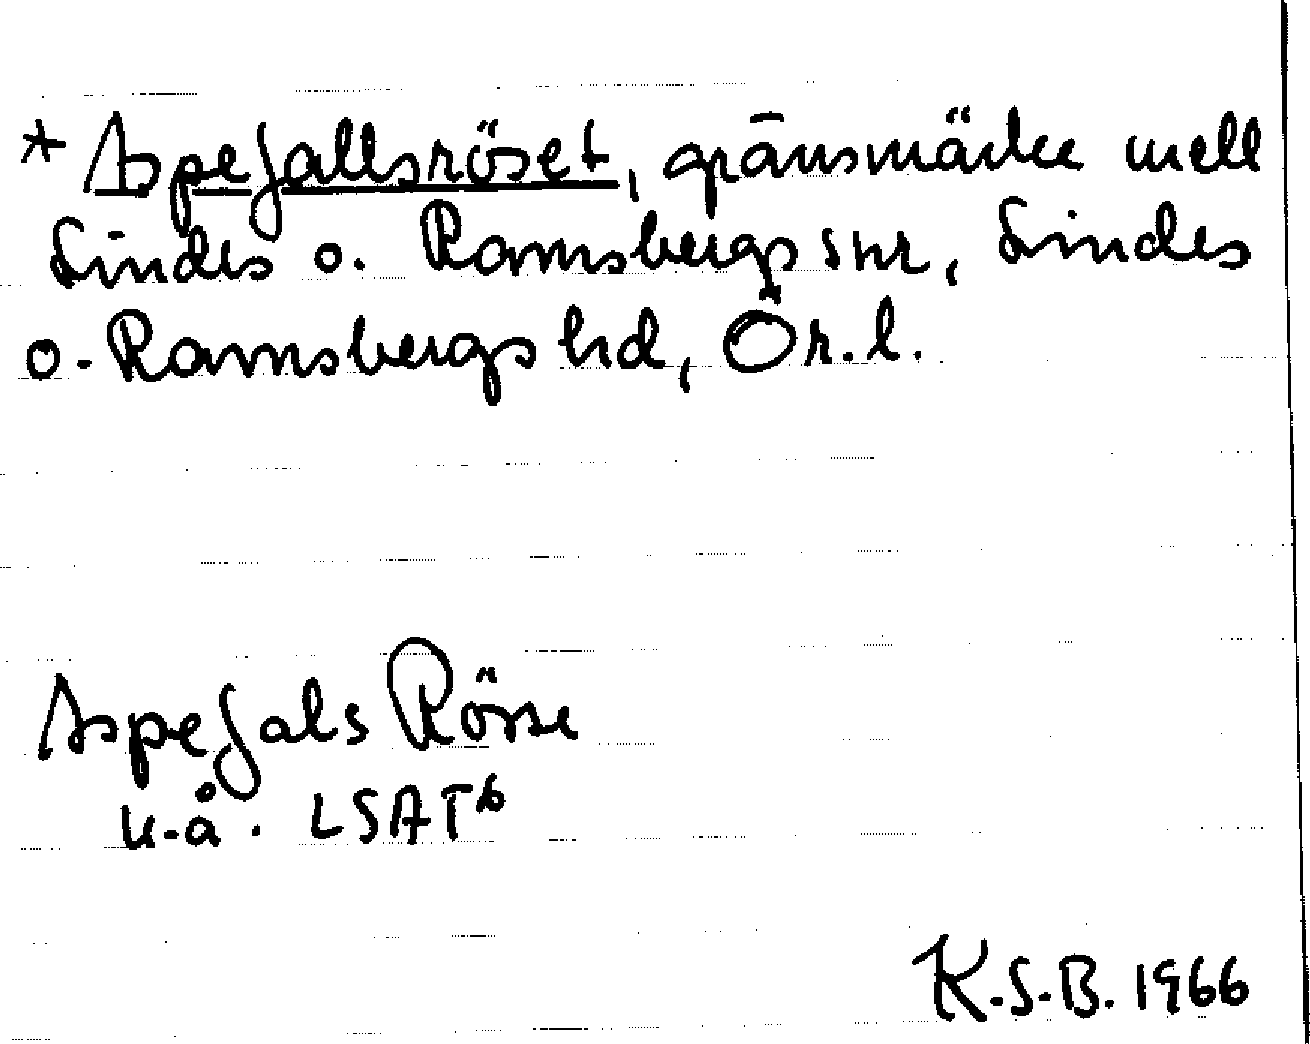 * Aspefallsröset, gränsmärke mell
Lindes o. Ramsbergs snr, Lindes
o. Ramsbergs hd, Ör. l.
Aspefals Rösse
u.å. LSA T6
K.S.B. 1966